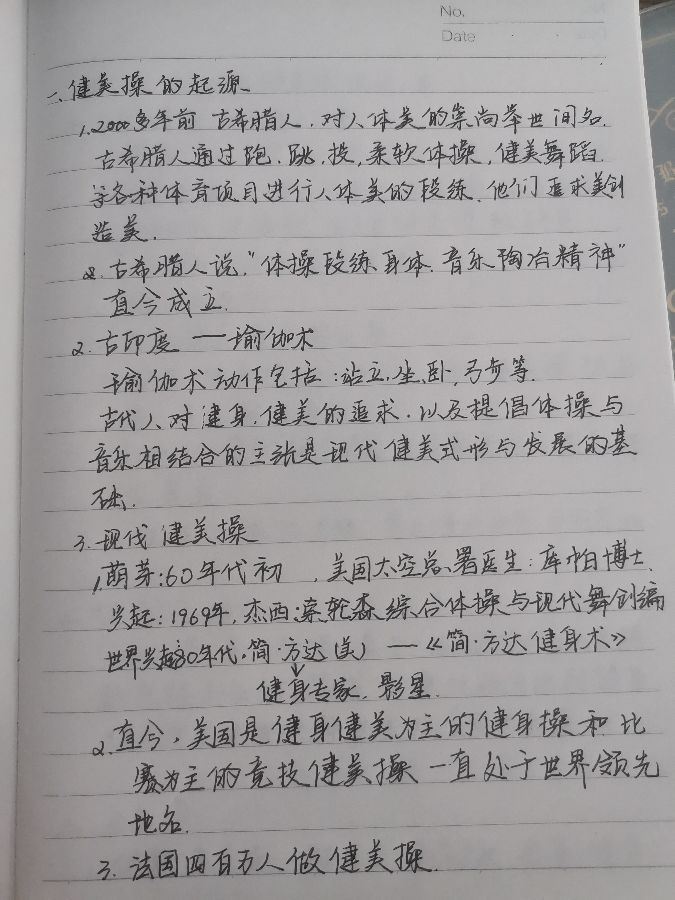 No.
Date
一、健美操的起源
1.2000多年前 古希腊人，对人体美的崇尚举世间名.
古希腊人通过跑.跳.投,柔软体操,健美舞蹈.
等各种体育项目进行人体美的段练.他们追求美创
造美.
2.古希腊人说,"体操段练身体.音乐陶冶精神"
直今成立.
2.古印度 —瑜伽术
瑜伽术动作包括:站立,坐,卧,弓步等.
古代人对健身.健美的追求.以及提倡体操与
音乐相结合的主张是现代健美式形与发展的基
础.
3.现代健美操
1.萌芽:60年代初 ,美国太空总署医生:库帕博士.
兴起:1969年,杰西:索轮森,综合体操与现代舞创编
世界兴起80年代.简·方达(美) —《简·方达健身术》
健身专家.影星.
2.直今,美国是健身健美为主的健身操和比
赛为主的竞技健美操一直处于世界领先
地名.
3.法国四百万人做健美操.